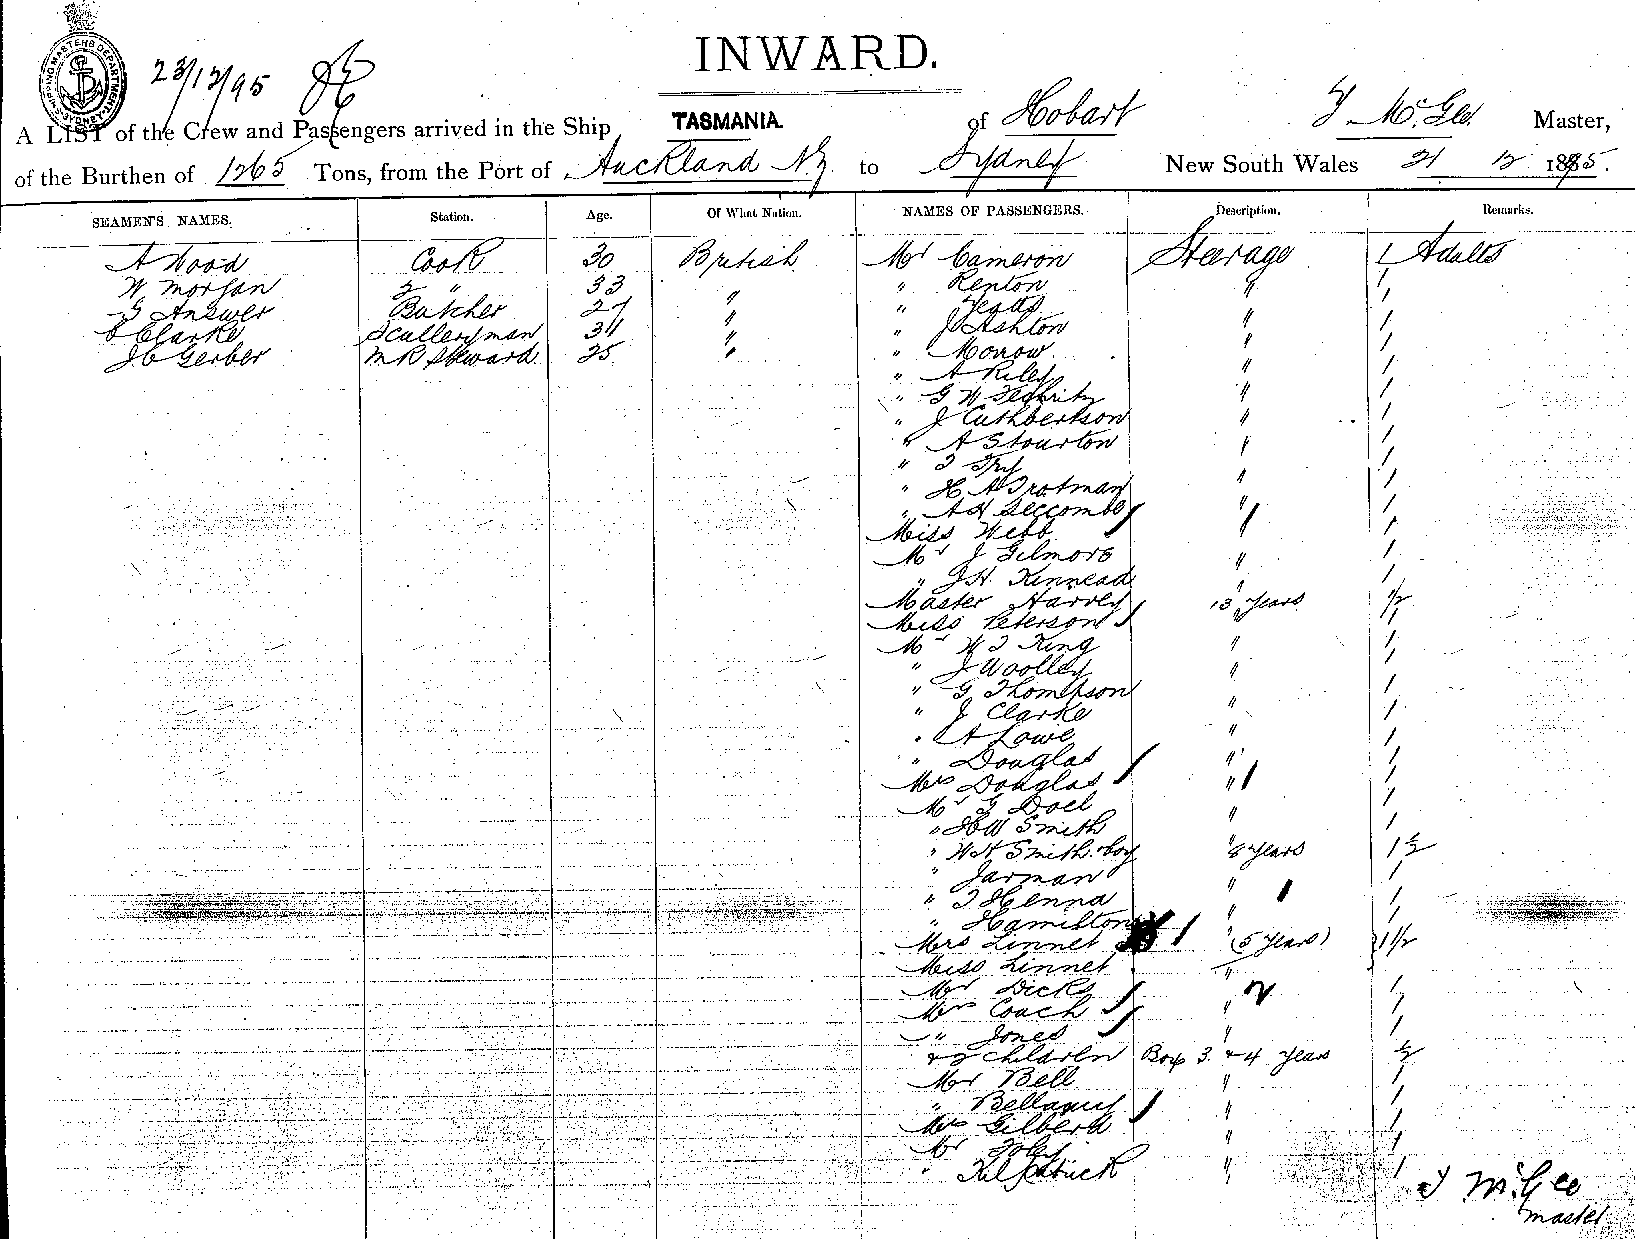 INWARD.
SHIPPING MASTERS DEPARTMENT SYDNEY
23/12/95
A LIST of the Crew and Passengers arrived in the Ship TASMANIA of Hobart T McGee Master,
of the Burthen of 1265 Tons, from the Port of Auckland NZ to Sydney New South Wales 21 12 1895.
SEAMEN'S NAMES. Station. Age. Of What Nation. NAMES OF PASSENGERS. Description. Remarks.
A Wood Cook 30 British Mr Cameron Steerage 1 Adults
W Morgan 2 " 33 " " Renton " 1
T Answer Butcher 27 " " Yeatts " 1
C Clarke Sculleryman 34 " " J Ashton " 1
J C Gerber M R Steward 25 " " Morrow " 1
" A Riley " 1
" G W " 1
" J Cuthbertson " 1
" A Stourton " 1
" T Fry " 1
" H A Trotman " 1
" A H Seccombe " 1
Miss Webb 1
Mr J Gilmore " 1
" J H Kinnead " 1
Master Harvey 3 years 1/2
Miss Peterson " 1
Mr W T King " 1
" J Woolley " 1
" G Thompson " 1
" J Clarke " 1
" A Lowe " 1
" Douglas " 1
Mrs Douglas " 1
Mr G Doel " 1
" H W Smith 1
" W H Smith & boy 8 years 1 1/2
" Jarman " 1
" T Henna " 1
" Hamilton " 1
Mrs Linnet (5 years) 1 1/2
Miss Linnet "
Mr Dicks " 1
Mrs Coach " 1
" Jones " 1
& 2 children Boys 3 & 4 years 1/2
Mr Bell " 1
" Bellamy " 1
Mrs Gilberd " 1
Mr Foley " 1
" Kilpatrick " 1
T McGee
master